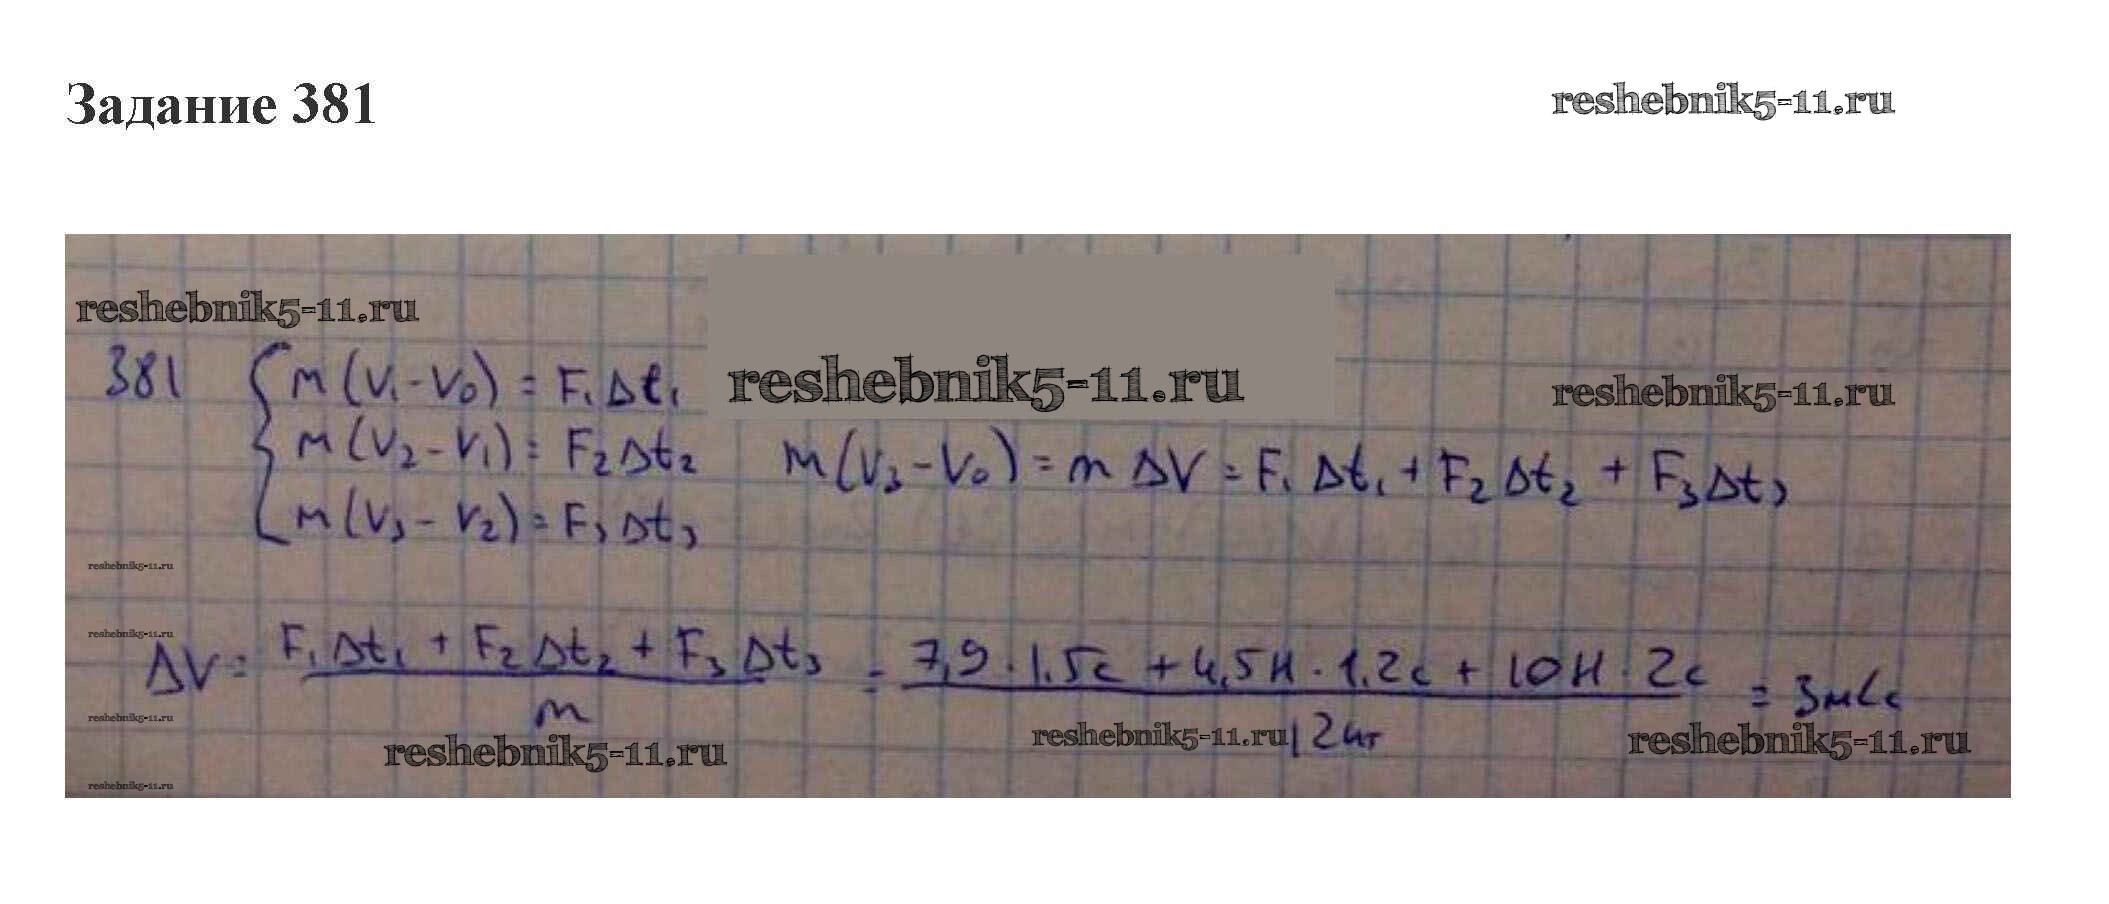 Задание 381
reshebnik5-11.ru
reshebnik5-11.ru
381 { m(v₁-v₀) = F₁Δt₁
reshebnik5-11.ru
reshebnik5-11.ru
m(v₂-v₁) = F₂Δt₂
m(v₃-v₀) = mΔV = F₁Δt₁ + F₂Δt₂ + F₃Δt₃
m(v₃-v₂) = F₃Δt₃
reshebnik5-11.ru
reshebnik5-11.ru
ΔV = (F₁Δt₁ + F₂Δt₂ + F₃Δt₃)/m = (7,9·1.5с + 4,5Н·1.2с + 10Н·2с)/12кг = 3м/с
reshebnik5-11.ru
reshebnik5-11.ru
reshebnik5-11.ru
reshebnik5-11.ru
reshebnik5-11.ru